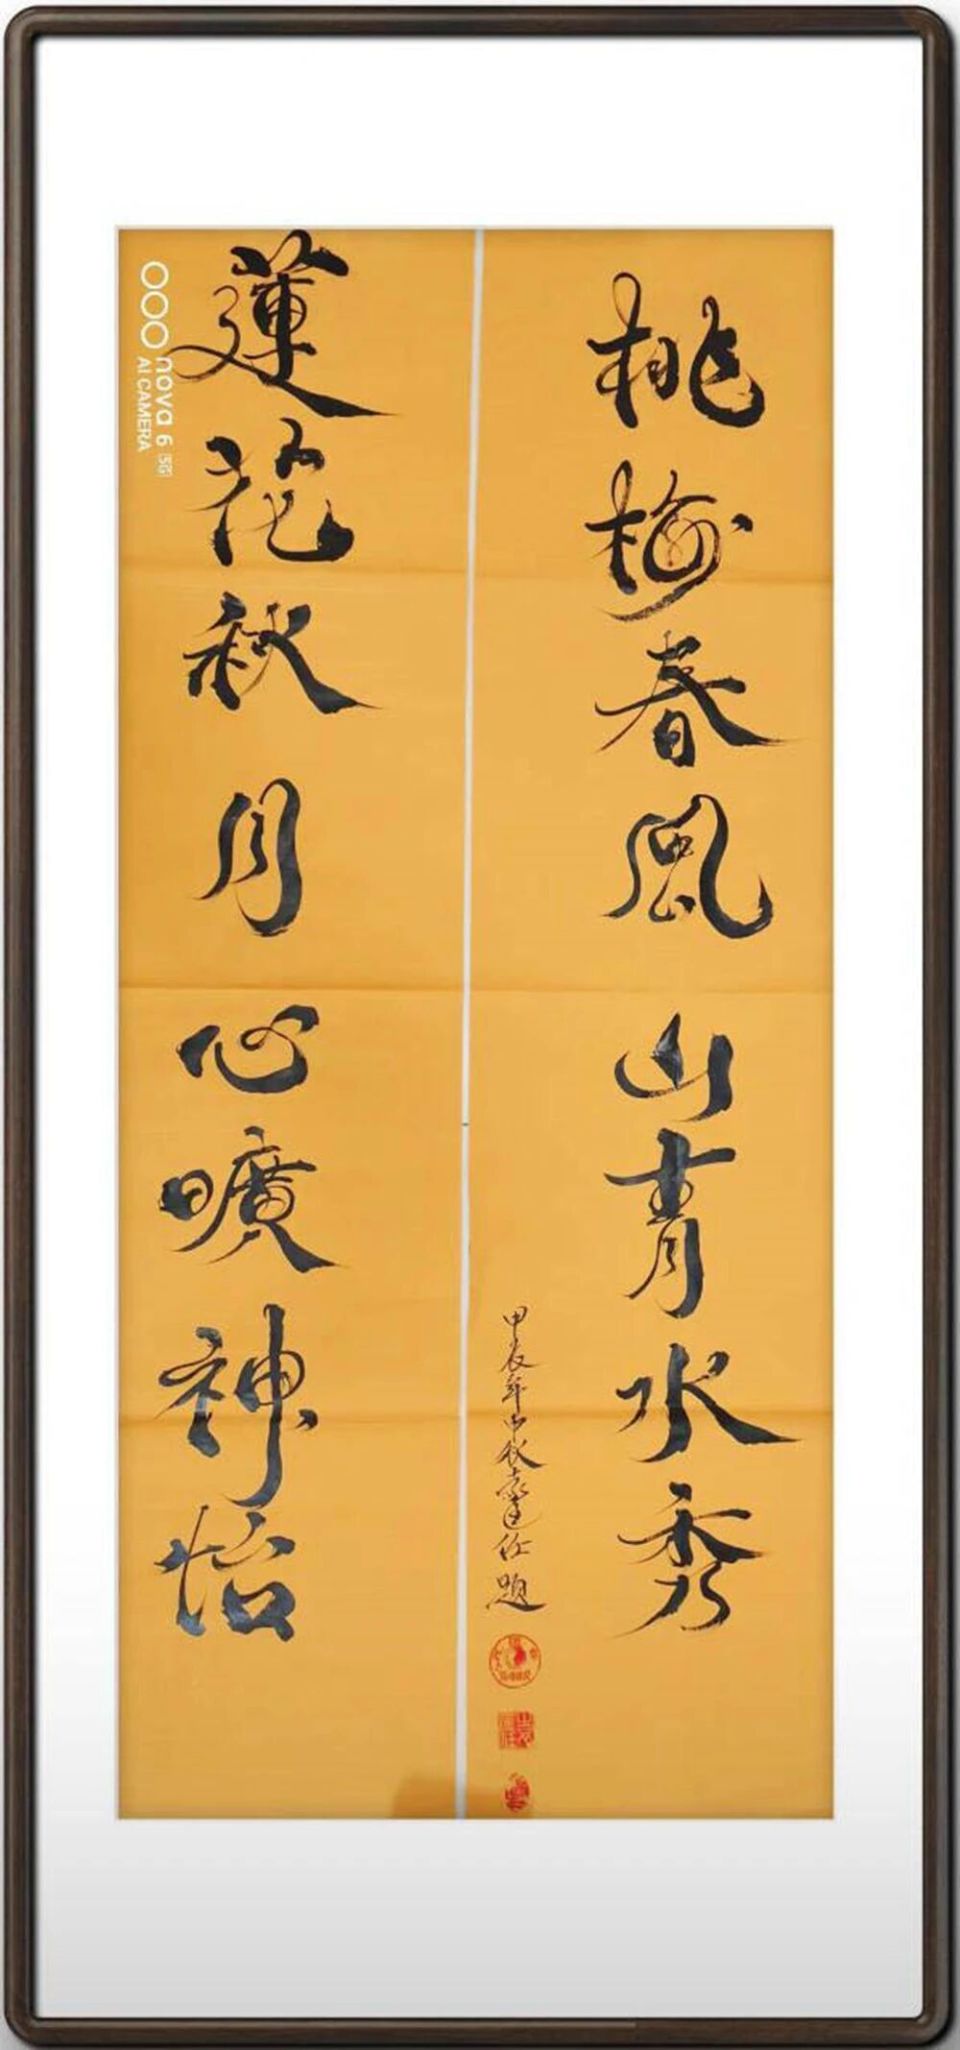 桃榆春風山青水秀
甲辰年中秋袁達仁題
蓮花秋月心曠神怡
nova 6 5G
AI CAMERA